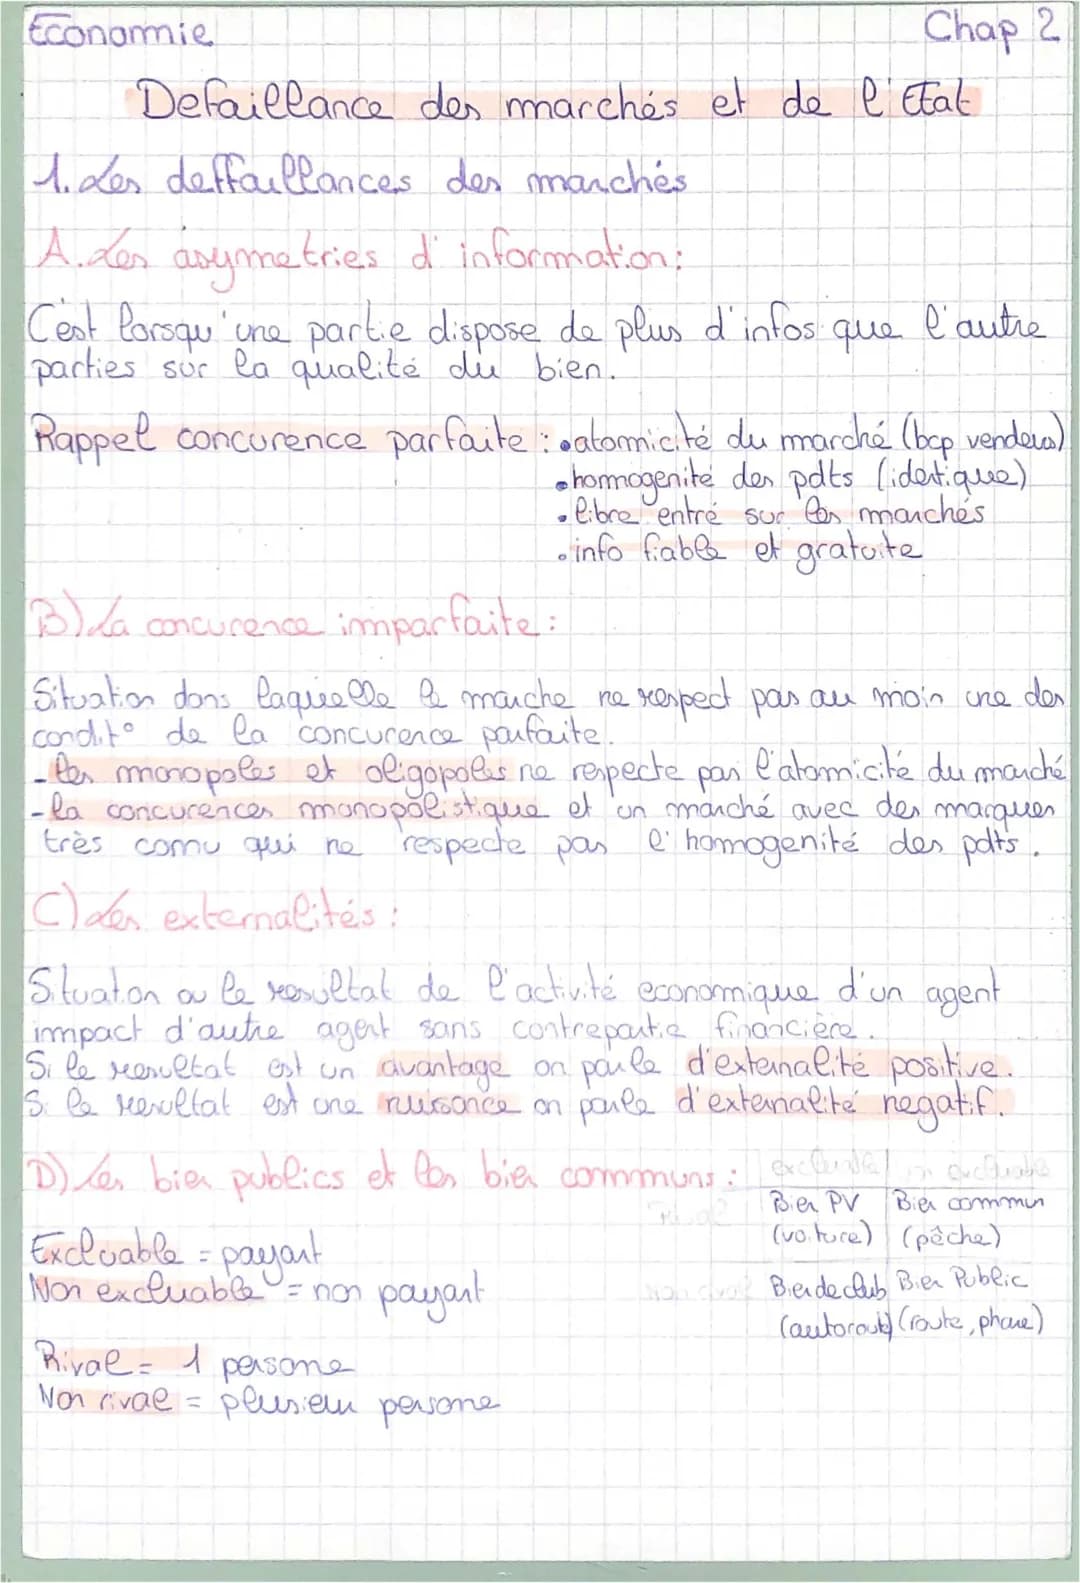 Economie Chap 2
Defaillance des marchés et de l'Etat
1. Les deffaillances des marchés
A. Les asymetries d'information :
C'est lorsqu'une partie dispose de plus d'infos que l'autre
parties sur la qualité du bien.
Rappel concurence parfaite : • atomicité du marché (bcp vendeurs)
• homogenité des pdts (identique)
• libre entré sur les marchés
• info fiable et gratuite
B) La concurence imparfaite :
Situation dans laquelle le marche ne respect pas au moin une des
condit° de la concurence parfaite.
- les monopoles et oligopoles ne respecte pas l'atomicité du marché
- la concurences monopolistique et un marché avec des marques
très connu qui ne respecte pas l'homogenité des pdts.
C) Les externalités :
Situation ou le resultat de l'activité economique d'un agent
impact d'autre agent sans contrepartie financière.
Si le resultat est un avantage on parle d'externalité positive.
Si le resultat est une nuisance on parle d'externalité negatif.
D) Les bien publics et les bien communs :
excluable non excluable
Rival Bien PV Bien commun
(voiture) (pêche)
Non rival Bien de club Bien Public
(autoroute) (route, phare)
Excluable = payant
Non excluable = non payant
Rival = 1 persone
Non rival = plusieur persone